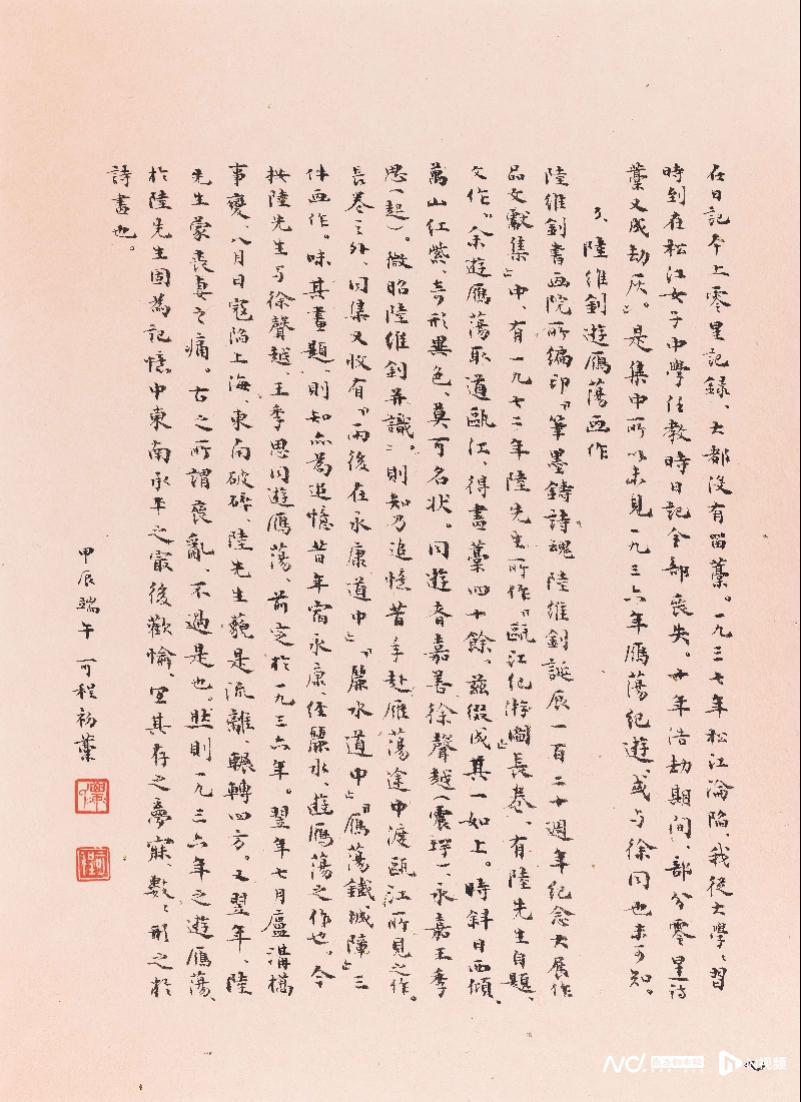 在日記本上零星記錄、大都没有留藁。一九三七年松江淪陷、我從大學、習
時到在松江女子中學任教時日記全部喪失。十年浩劫期间、部分零星詩
藁又成劫灰。』是集中所以未見一九三六年雁蕩紀遊、或与徐同也未可知。
3、陸維釗遊雁蕩画作
陸維釗書画院所编印『筆墨鑄詩魂 陸維釗誕辰一百二十週年紀念大展作
品文獻集』中、有一九七二年陸先生所作『甌江纪游圖』長卷、有陸先生自題、
文作『余遊雁蕩取道甌江、得畫藁四十餘、兹缀成其一如上。時斜日西傾、
萬山红紫、奇形異色、莫可名状。同遊者嘉善徐聲越（震堮）、永嘉王季
思（起）。微昭陸维釗并識』。則知乃追憶昔年赴雁蕩途中渡甌江所見之作。
長卷之外、同集又收有『雨後在永康道中』『麗水道中』『雁蕩鐵城障』三
件画作。味其畫題、則知亦為追憶昔年宿永康、径麗水、遊雁蕩之作也。今
按陸先生与徐聲越、王季思同遊雁蕩、前定於一九三六年。翌年七月盧溝橋
事變、八月日寇陷上海、東南破碎、陸先生藐是流離、輾轉四方。又翌年、陸
先生蒙喪妻之痛。古之所謂喪亂、不過是也。然則一九三六年之遊雁蕩、
於陸先生固為記憶中東南承平之最後歡愉、宜其存之夢寐、數、形之於
詩畫也。
甲辰端午 可程初藁
N視频